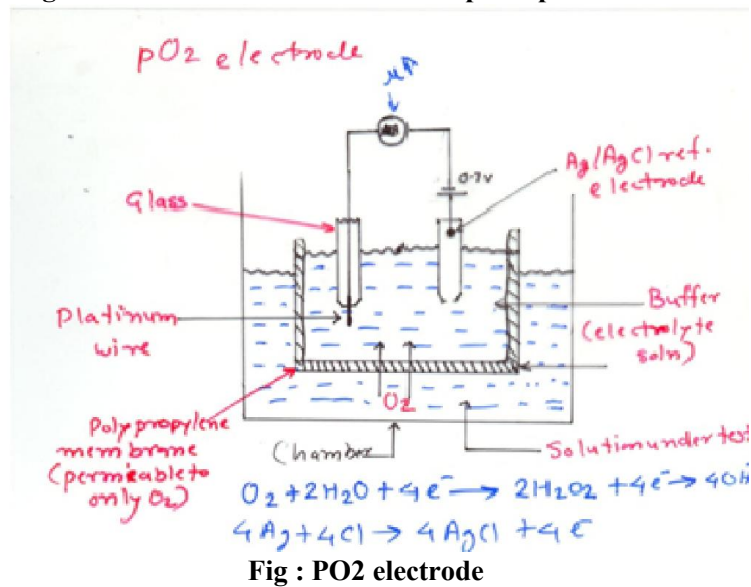 pO2 electrode
μA
0.7v
Ag/AgCl ref.
electrode
Glass
Platinum
wire
Buffer
(electrolyte
soln)
O2
Polypropylene
membrane
(permeable to
only O2)
Chamber
Solution under test
O2 + 2H2O + 4e- → 2H2O2 + 4e- → 4OH
4Ag + 4Cl → 4AgCl + 4e
Fig : PO2 electrode